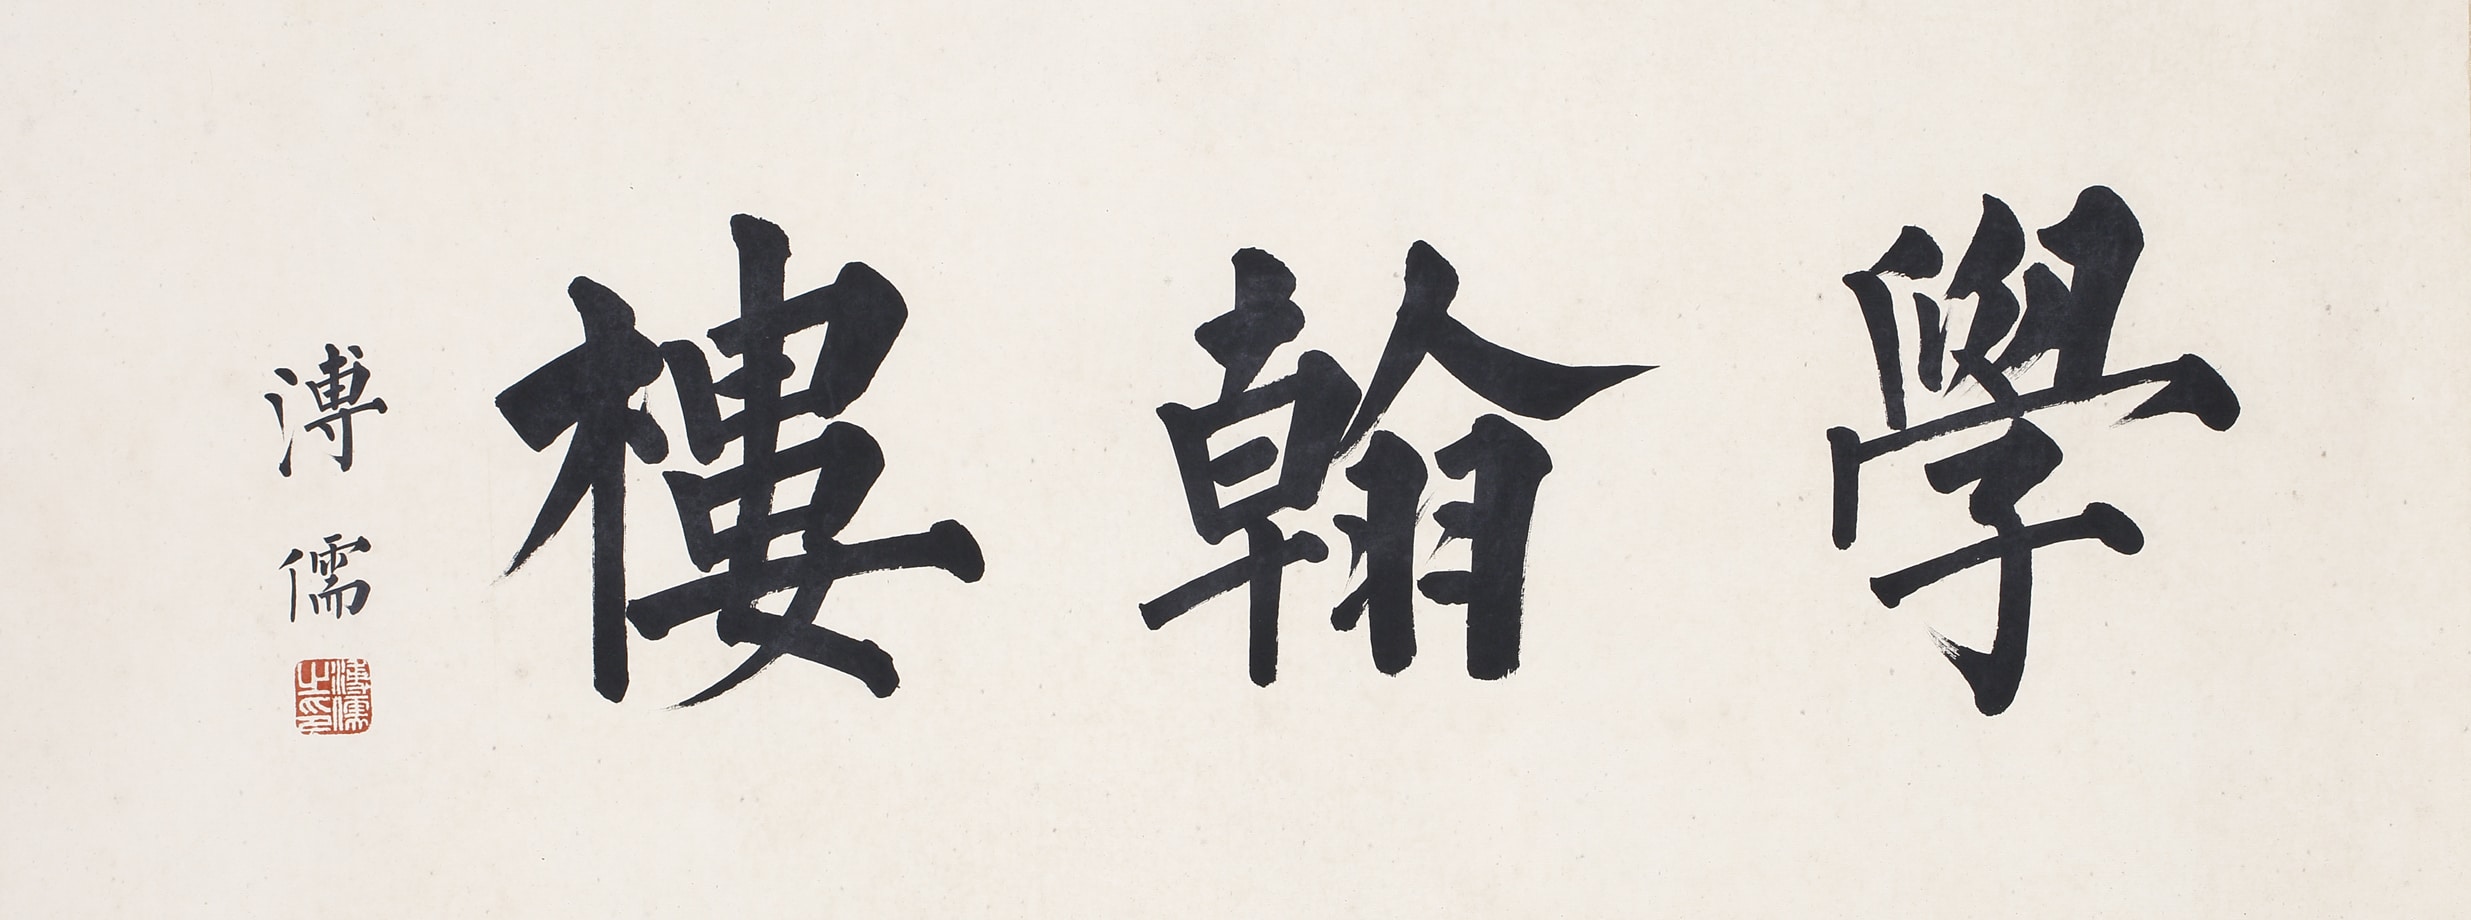 學翰樓
溥儒
溥儒之印